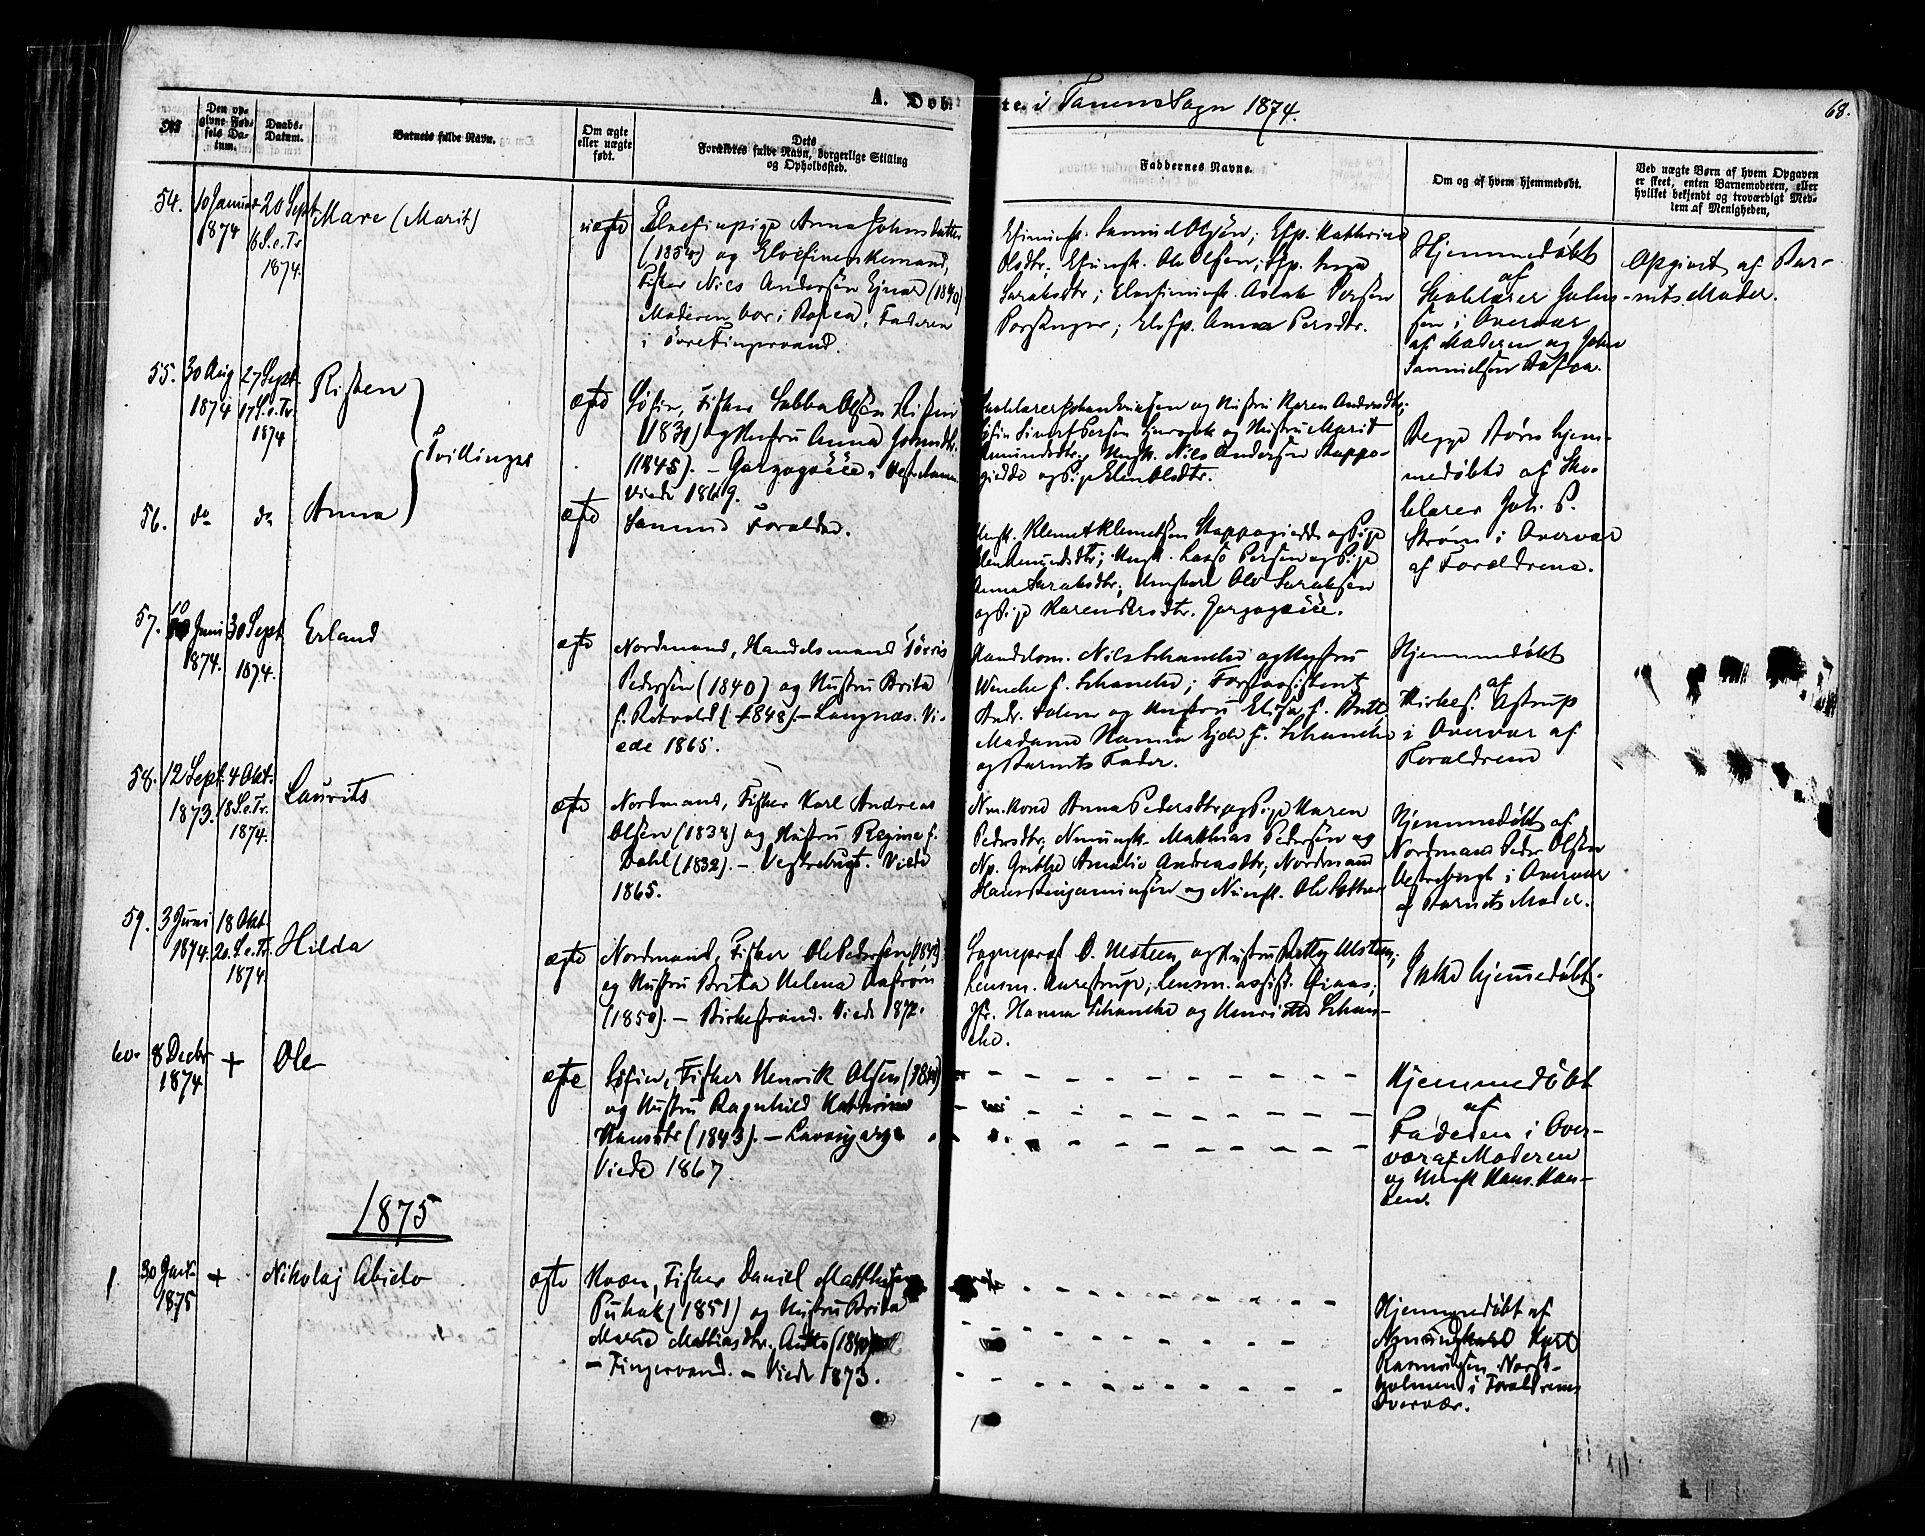 A. Døbte i Tanens Sogn 1874.
68.
№
Den opgivne Fødsels Datum.
Daabs-Datum.
Barnets fulde Navn.
Om ægte eller uægte født.
Dets Forældres fulde Navn, borgerlige Stilling og Opholdssted.
Faddernes Navne.
Om og af hvem hjemmedøbt.
Ved uægte Børn af hvem Opgaven er skeet, enten Barnemoderen, eller hvilket bekjendt og troværdigt Medlem af Menigheden,
54.
10 Januar
1874
20 Sept
16 S.e.Tr
1874.
Mare (Marit)
uægte
Elvefinpige Anna Johnsdatter
(1854) og Elvefinenkemand,
Fisker Nils Andersen Ejnar (1840)
Moderen bor i , Faderen
i Øvre Fingervand.
Samuel Olsen; Kathrine
Olsdtr; Ole Olsen; Inga
; Aslak Persen
Porsanger; Anna Persdtr.
Hjemmedøbt
af
Skolelærer Johnsen i Overvær
af Moderen og John
Samuelsen
Opgivet af Barnets Moder.
55.
30 Aug
1874
27 Sept.
17 S.e.Tr.
1874
Risten
Tvillinger
ægte
Søfin, Fisker Sabba Olsen
(1831) og Hustru Anna
(1845). –
Viede 1869.
Skolelærer og Hustru Karen Andersdtr;
Søfin Sivert Persen og Hustru Marit
Amundsdtr; Ungk. Nils Andersen Stappogiedde og Pige Elen Olsdtr.
Begge Børn hjemmedøbte af Skolelærer Joh. P.
Strøm i Overvær
af Forældrene.
56.
do
do
Anna
ægte
Samme Forældre.
Ungk. Klemet Klemetsen Stappogiedde og Pige
Elen Amundsdtr; Ungk. Lasse Persen og Pige
Anna Sarakdtr; Ungkarl Ole Saraksen
og Pige Karen Persdtr.
57.
10 Juni
1874.
30 Sept
1874.
Erland
ægte
Nordmand, Handelsmand Tørris
Pedersen (1840) og Hustru Brita
f. Retvold (1848). – Langnæs. Viede 1865.
Handelsm. Nils Schanche og Hustru
Wenche f. Schanche; Forstassistent
og Hustru Eliza f.
Madame Hanna f. Schanche
og Barnets Fader.
Hjemmedøbt
af
Kirkes. Astrup
i Overvær af
Forældrene
58.
12 Sept.
1873.
4 Okt.
18 S.e.Tr.
1874.
Laurits
ægte
Nordmand, Fisker Karl Andreas
Olsen (1834) og Hustru Regine f.
Dahl (1832). – Vestrebugt. Viede
1865.
Nm. Kone Anna Pedersdtr og Pige Karen
Pedersdtr, Nmungk. Matthias Pedersen og
Np. Grethe Amalie Andreasdtr, Nordmand
Hans Benjaminsen og Nmungk. Ole
Hjemmedøbt af
Nordmand Peder Olsen
Vestrebugt i Overvær
af Barnets Moder.
59.
3 Juni
1874.
18 Okt
20 S.e.Tr.
1874
Hilda
ægte
Nordmand, Fisker Ole Pedersen
og Hustru Brita Helena
(1850). – Birkestrand. Viede 1872.
Sognepræst O. Ulsteen og Hustru Betty Ulsteen;
Lensm. ; Lensm. assist. Giaas;
Jfr. Hanna Schanche og Henriette Schanche.
Ikke hjemmedøbt.
60.
8 Decbr
1874
+
Ole
ægte
Søfin, Fisker Henrik Olsen
og Hustru Ragnhild Kathrine
Hansdtr (1843). –
Viede 1867.
Hjemmedøbt
af
Faderen i Overvær af Moderen
og Ungk Hans Hansen.
1875
1
30 Jan.
1875
+
Nikolaj Abiela
ægte
Kvæn, Fisker Daniel Matthisen
Puhak (1851) og Hustru Brita
Maria Mathiasdtr. Autto
– Fingervand. – Viede 1873.
Hjemmedøbt af
Nmungkarl Karl
Rasmussen
holmen i Forældrenes
Overvær.